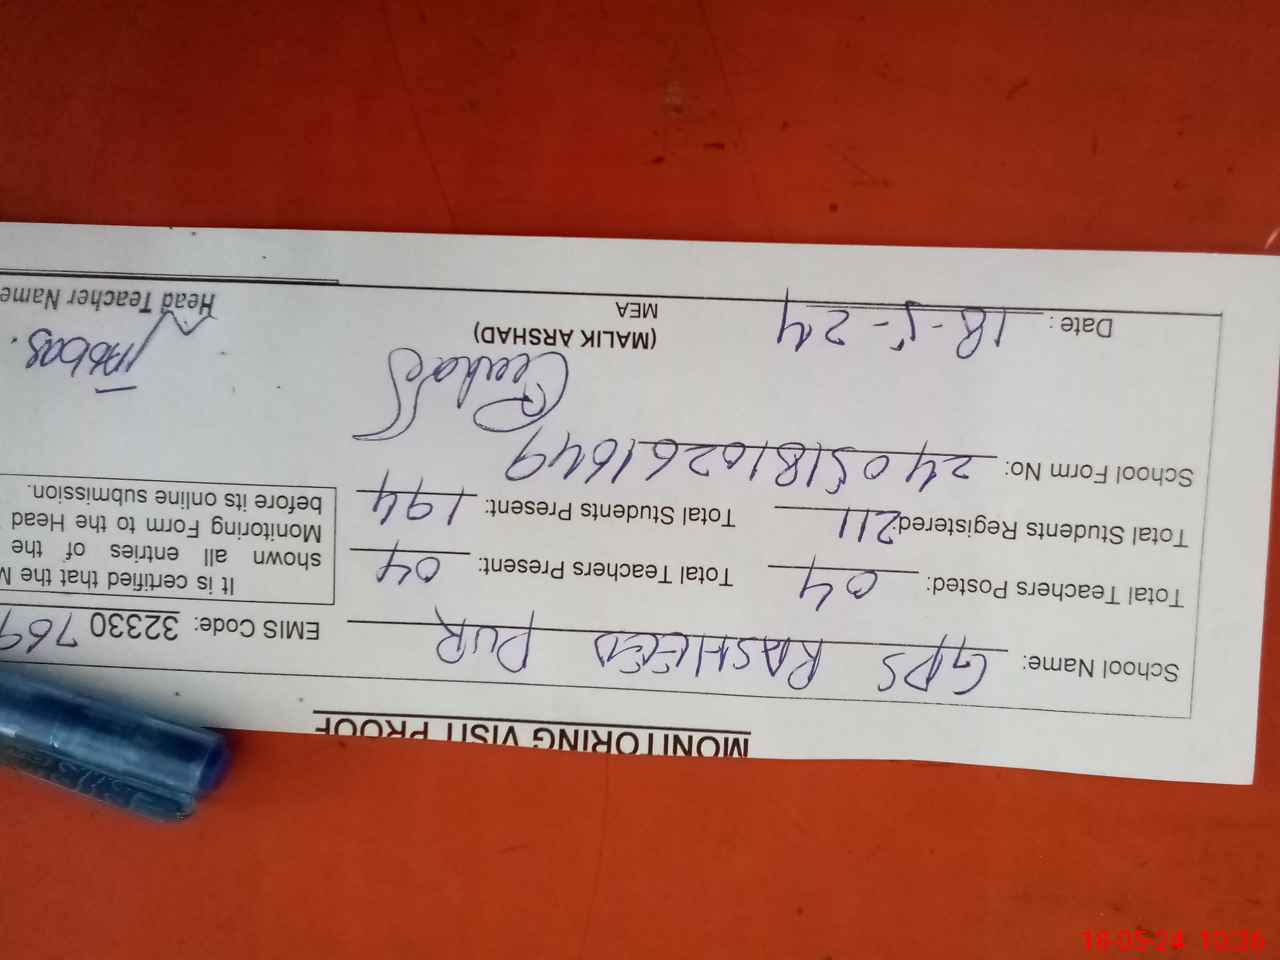 MONITORING VISIT PROOF
School Name: GPS RASHEED PUR EMIS Code: 32330 769
Total Teachers Posted: 04 Total Teachers Present: 04
Total Students Registered: 211 Total Students Present: 194
It is certified that the M
shown all entries of the
Monitoring Form to the Head
before its online submission.
School Form No: 24051810261649
Date: 18-5-24
(MALIK ARSHAD)
MEA
Head Teacher Name
18-05-24 10:36